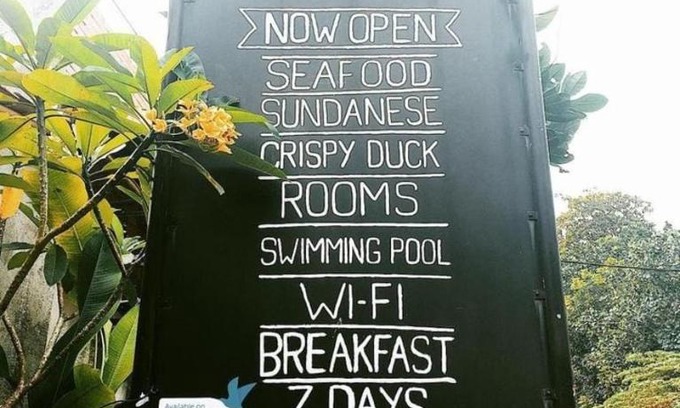 NOW OPEN
SEAFOOD
SUNDANESE
CRISPY DUCK
ROOMS
SWIMMING POOL
WI-FI
BREAKFAST
7 DAYS
Available on